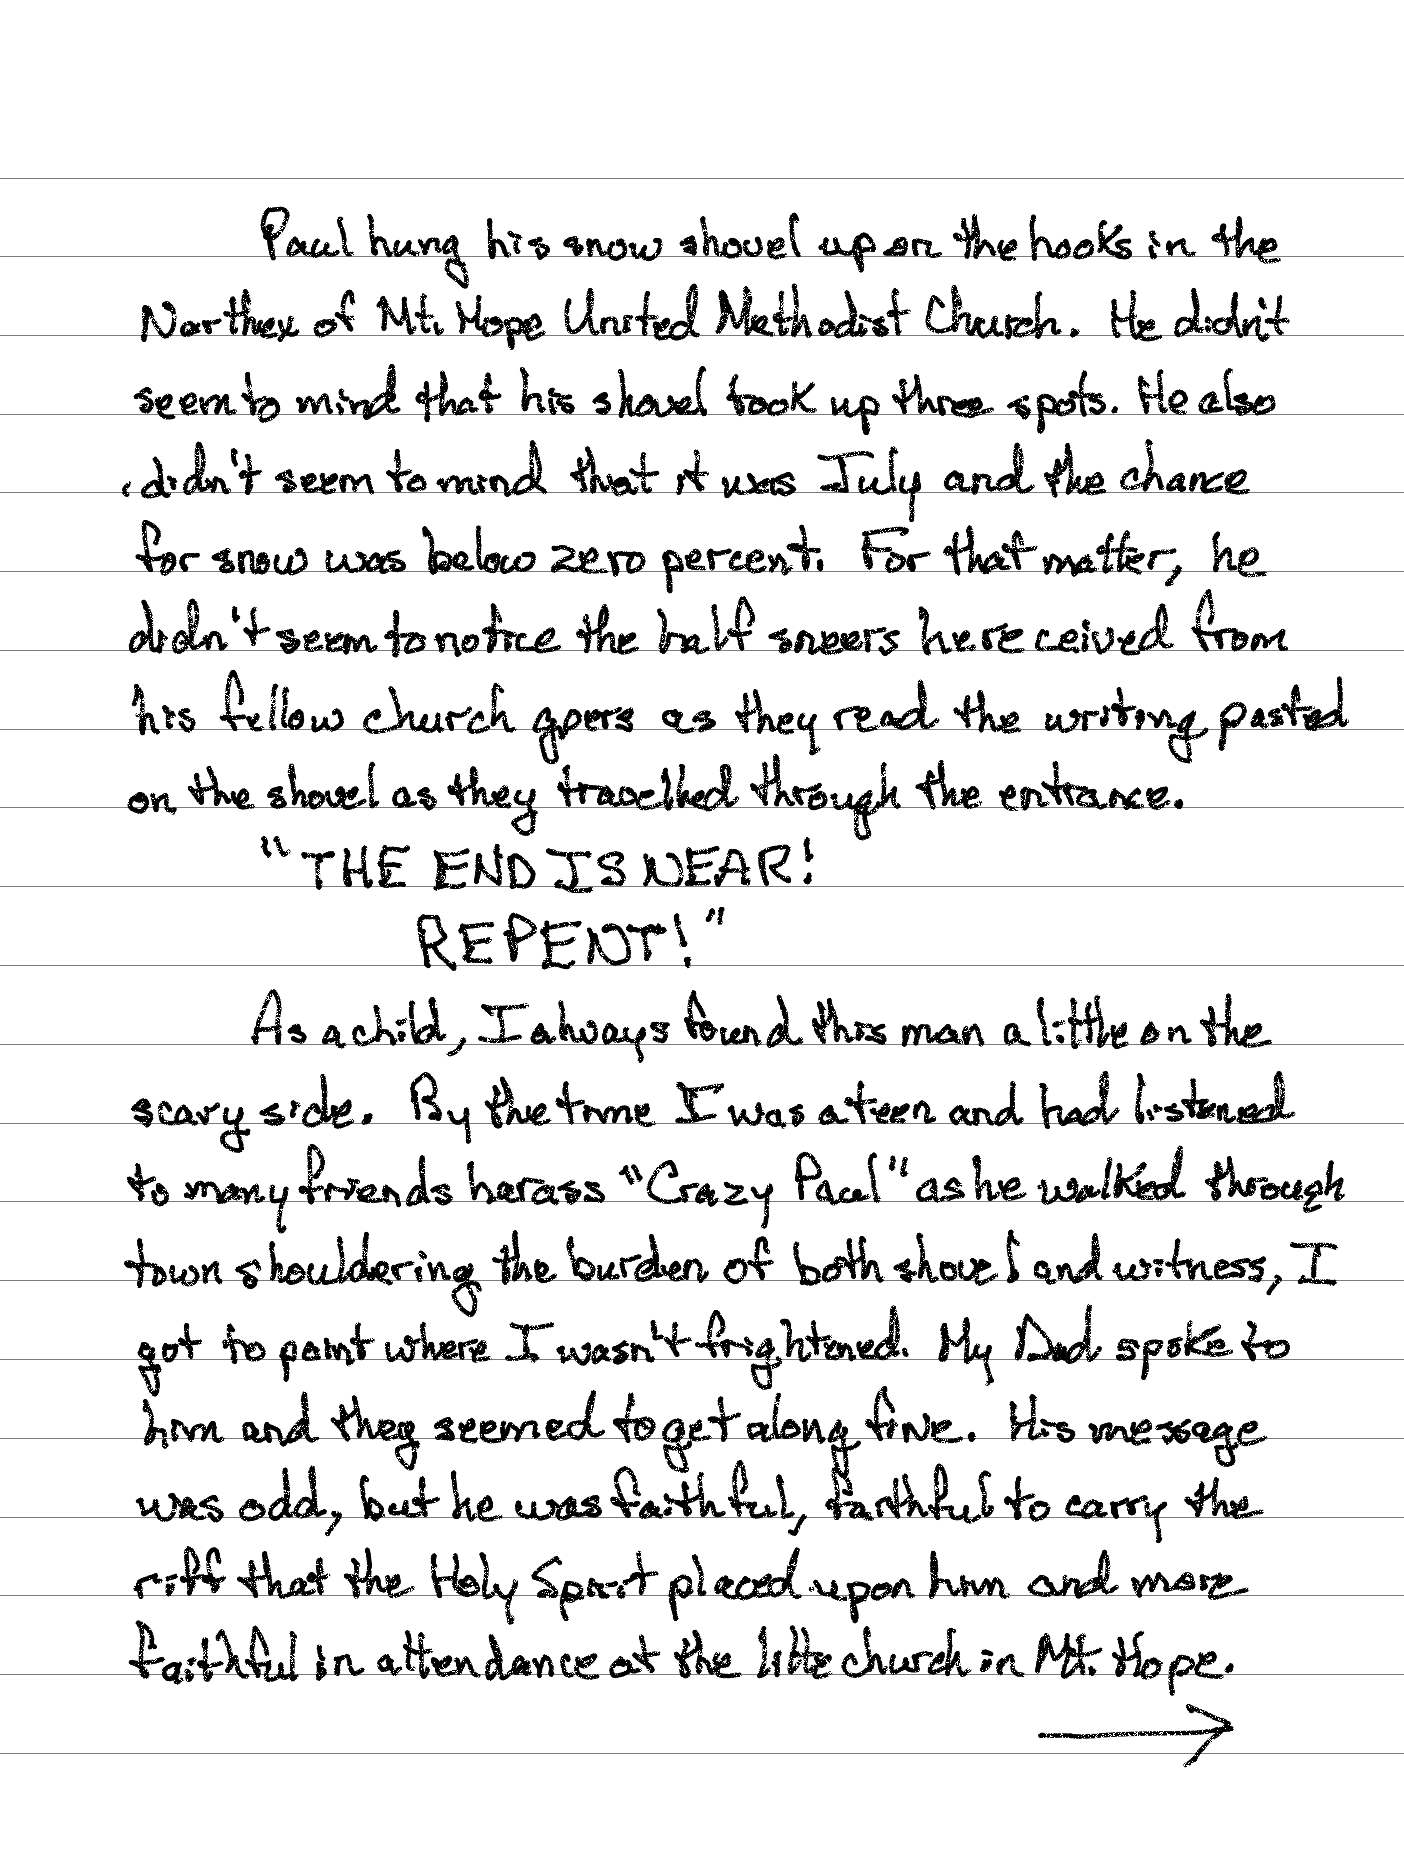 Paul hung his snow shovel up on the hooks in the
Narthex of Mt. Hope United Methodist Church. He didn't
seem to mind that his shovel took up three spots. He also
didn't seem to mind that it was July and the chance
for snow was below zero percent. For that matter, he
didn't seem to notice the half sneers he received from
his fellow church goers as they read the writing pasted
on the shovel as they travelled through the entrance.
"THE END IS NEAR!
REPENT!"
As a child, I always found this man a little on the
scary side. By the time I was a teen and had listened
to many friends harass "Crazy Paul" as he walked through
town shouldering the burden of both shovel and witness, I
got to point where I wasn't frightened. My Dad spoke to
him and they seemed to get along fine. His message
was odd, but he was faithful, faithful to carry the
riff that the Holy Spirit placed upon him and more
faithful in attendance at the little church in Mt. Hope.